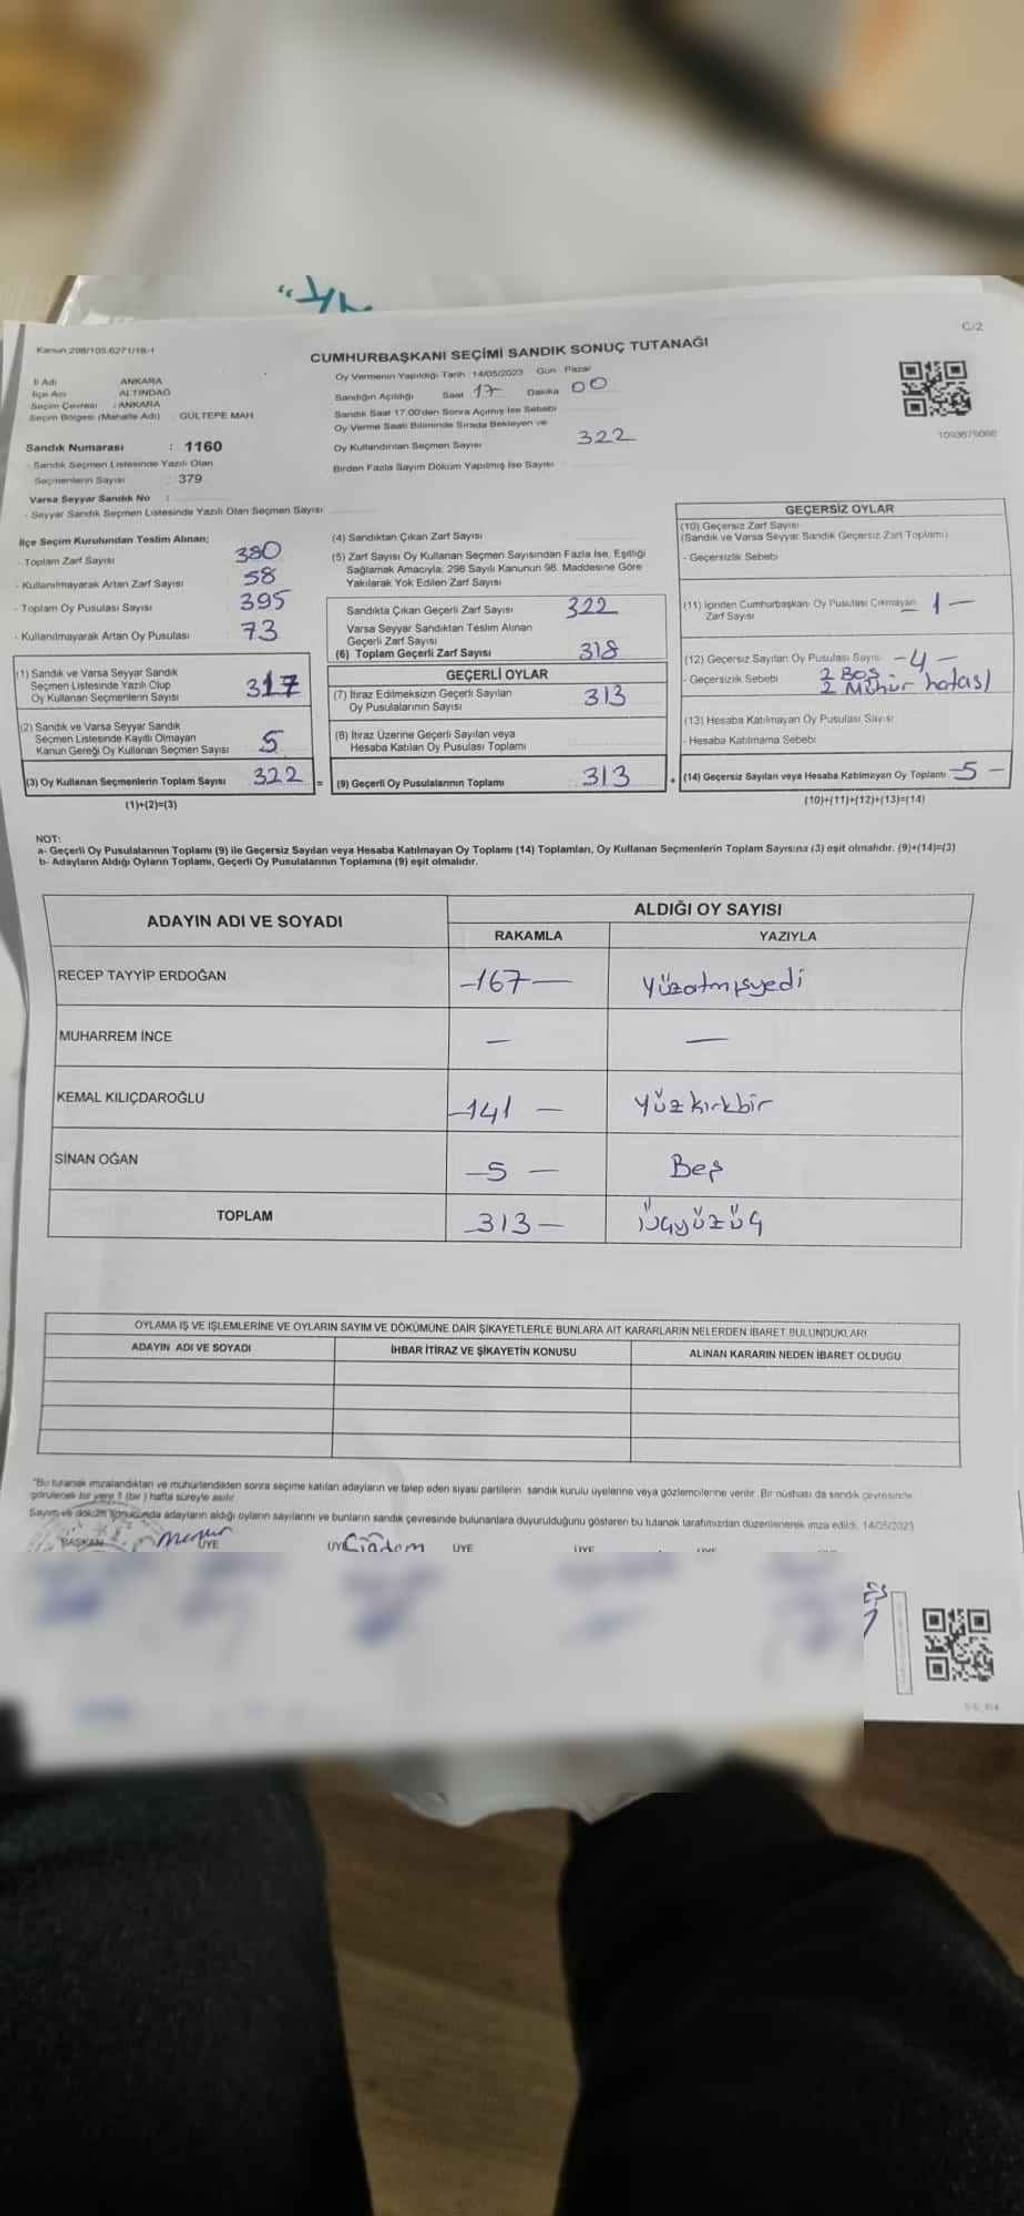 C/2
Kanun:298/105,6271/18-1
CUMHURBAŞKANI SEÇİMİ SANDIK SONUÇ TUTANAĞI
İl Adı : ANKARA
İlçe Adı : ALTINDAĞ
Seçim Çevresi : ANKARA
Seçim Bölgesi (Mahalle Adı) : GÜLTEPE MAH
Sandık Numarası : 1160
- Sandık Seçmen Listesinde Yazılı Olan
Seçmenlerin Sayısı : 379
Varsa Seyyar Sandık No :
- Seyyar Sandık Seçmen Listesinde Yazılı Olan Seçmen Sayısı
Oy Vermenin Yapıldığı Tarih : 14/05/2023 Gün : Pazar
Sandığın Açıldığı Saat 17 Dakika 00
Sandık Saat 17.00'den Sonra Açılmış İse Sebebi
Oy Verme Saati Bitiminde Sırada Bekleyen ve
Oy Kullandırılan Seçmen Sayısı 322
Birden Fazla Sayım Döküm Yapılmış İse Sayısı
İlçe Seçim Kurulundan Teslim Alınan;
- Toplam Zarf Sayısı 380
- Kullanılmayarak Artan Zarf Sayısı 58
- Toplam Oy Pusulası Sayısı 395
- Kullanılmayarak Artan Oy Pusulası 73
(1) Sandık ve Varsa Seyyar Sandık
Seçmen Listesinde Yazılı Olup
Oy Kullanan Seçmenlerin Sayısı 317
(2) Sandık ve Varsa Seyyar Sandık
Seçmen Listesinde Kayıtlı Olmayan
Kanun Gereği Oy Kullanan Seçmen Sayısı 5
(3) Oy Kullanan Seçmenlerin Toplam Sayısı 322 =
(1)+(2)=(3)
(4) Sandıktan Çıkan Zarf Sayısı
(5) Zarf Sayısı Oy Kullanan Seçmen Sayısından Fazla İse, Eşitliği
Sağlamak Amacıyla; 298 Sayılı Kanunun 98. Maddesine Göre
Yakılarak Yok Edilen Zarf Sayısı
Sandıkta Çıkan Geçerli Zarf Sayısı 322
Varsa Seyyar Sandıktan Teslim Alınan
Geçerli Zarf Sayısı
(6) Toplam Geçerli Zarf Sayısı 318
GEÇERLİ OYLAR
(7) İtiraz Edilmeksizin Geçerli Sayılan
Oy Pusulalarının Sayısı 313
(8) İtiraz Üzerine Geçerli Sayılan veya
Hesaba Katılan Oy Pusulası Toplamı
(9) Geçerli Oy Pusulalarının Toplamı 313 +
GEÇERSİZ OYLAR
(10) Geçersiz Zarf Sayısı
(Sandık ve Varsa Seyyar Sandık Geçersiz Zarf Toplamı)
- Geçersizlik Sebebi
(11) İçinden Cumhurbaşkanı Oy Pusulası Çıkmayan
Zarf Sayısı 1 —
(12) Geçersiz Sayılan Oy Pusulası Sayısı - 4 -
- Geçersizlik Sebebi 2 Boş
2 Mühür hatası
(13) Hesaba Katılmayan Oy Pusulası Sayısı
- Hesaba Katılmama Sebebi
(14) Geçersiz Sayılan veya Hesaba Katılmayan Oy Toplamı - 5 -
(10)+(11)+(12)+(13)=(14)
NOT:
a- Geçerli Oy Pusulalarının Toplamı (9) ile Geçersiz Sayılan veya Hesaba Katılmayan Oy Toplamı (14) Toplamları, Oy Kullanan Seçmenlerin Toplam Sayısına (3) eşit olmalıdır. (9)+(14)=(3)
b- Adayların Aldığı Oyların Toplamı, Geçerli Oy Pusulalarının Toplamına (9) eşit olmalıdır.
ADAYIN ADI VE SOYADI
ALDIĞI OY SAYISI
RAKAMLA YAZIYLA
RECEP TAYYİP ERDOĞAN -167- Yüzatmışyedi
MUHARREM İNCE - —
KEMAL KILIÇDAROĞLU -141 - Yüzkırkbir
SİNAN OĞAN -5 - Beş
TOPLAM -313- Üçyüzüç
OYLAMA İŞ VE İŞLEMLERİNE VE OYLARIN SAYIM VE DÖKÜMÜNE DAİR ŞİKAYETLERLE BUNLARA AİT KARARLARIN NELERDEN İBARET BULUNDUKLARI
ADAYIN ADI VE SOYADI İHBAR İTİRAZ VE ŞİKAYETİN KONUSU ALINAN KARARIN NEDEN İBARET OLDUĞU
"Bu tutanak imzalandıktan ve mühürlendikten sonra seçime katılan adayların ve talep eden siyasi partilerin, sandık kurulu üyelerine veya gözlemcilerine verilir. Bir nüshası da sandık çevresinde
görülecek bir yere 1 (bir) hafta süreyle asılır
Sayım ve döküm sonucunda adayların aldığı oyların sayılarını ve bunların sandık çevresinde bulunanlara duyurulduğunu gösteren bu tutanak tarafımızdan düzenlenerek imza edildi. 14/05/2023
BAŞKAN ÜYE ÜYE ÜYE ÜYE